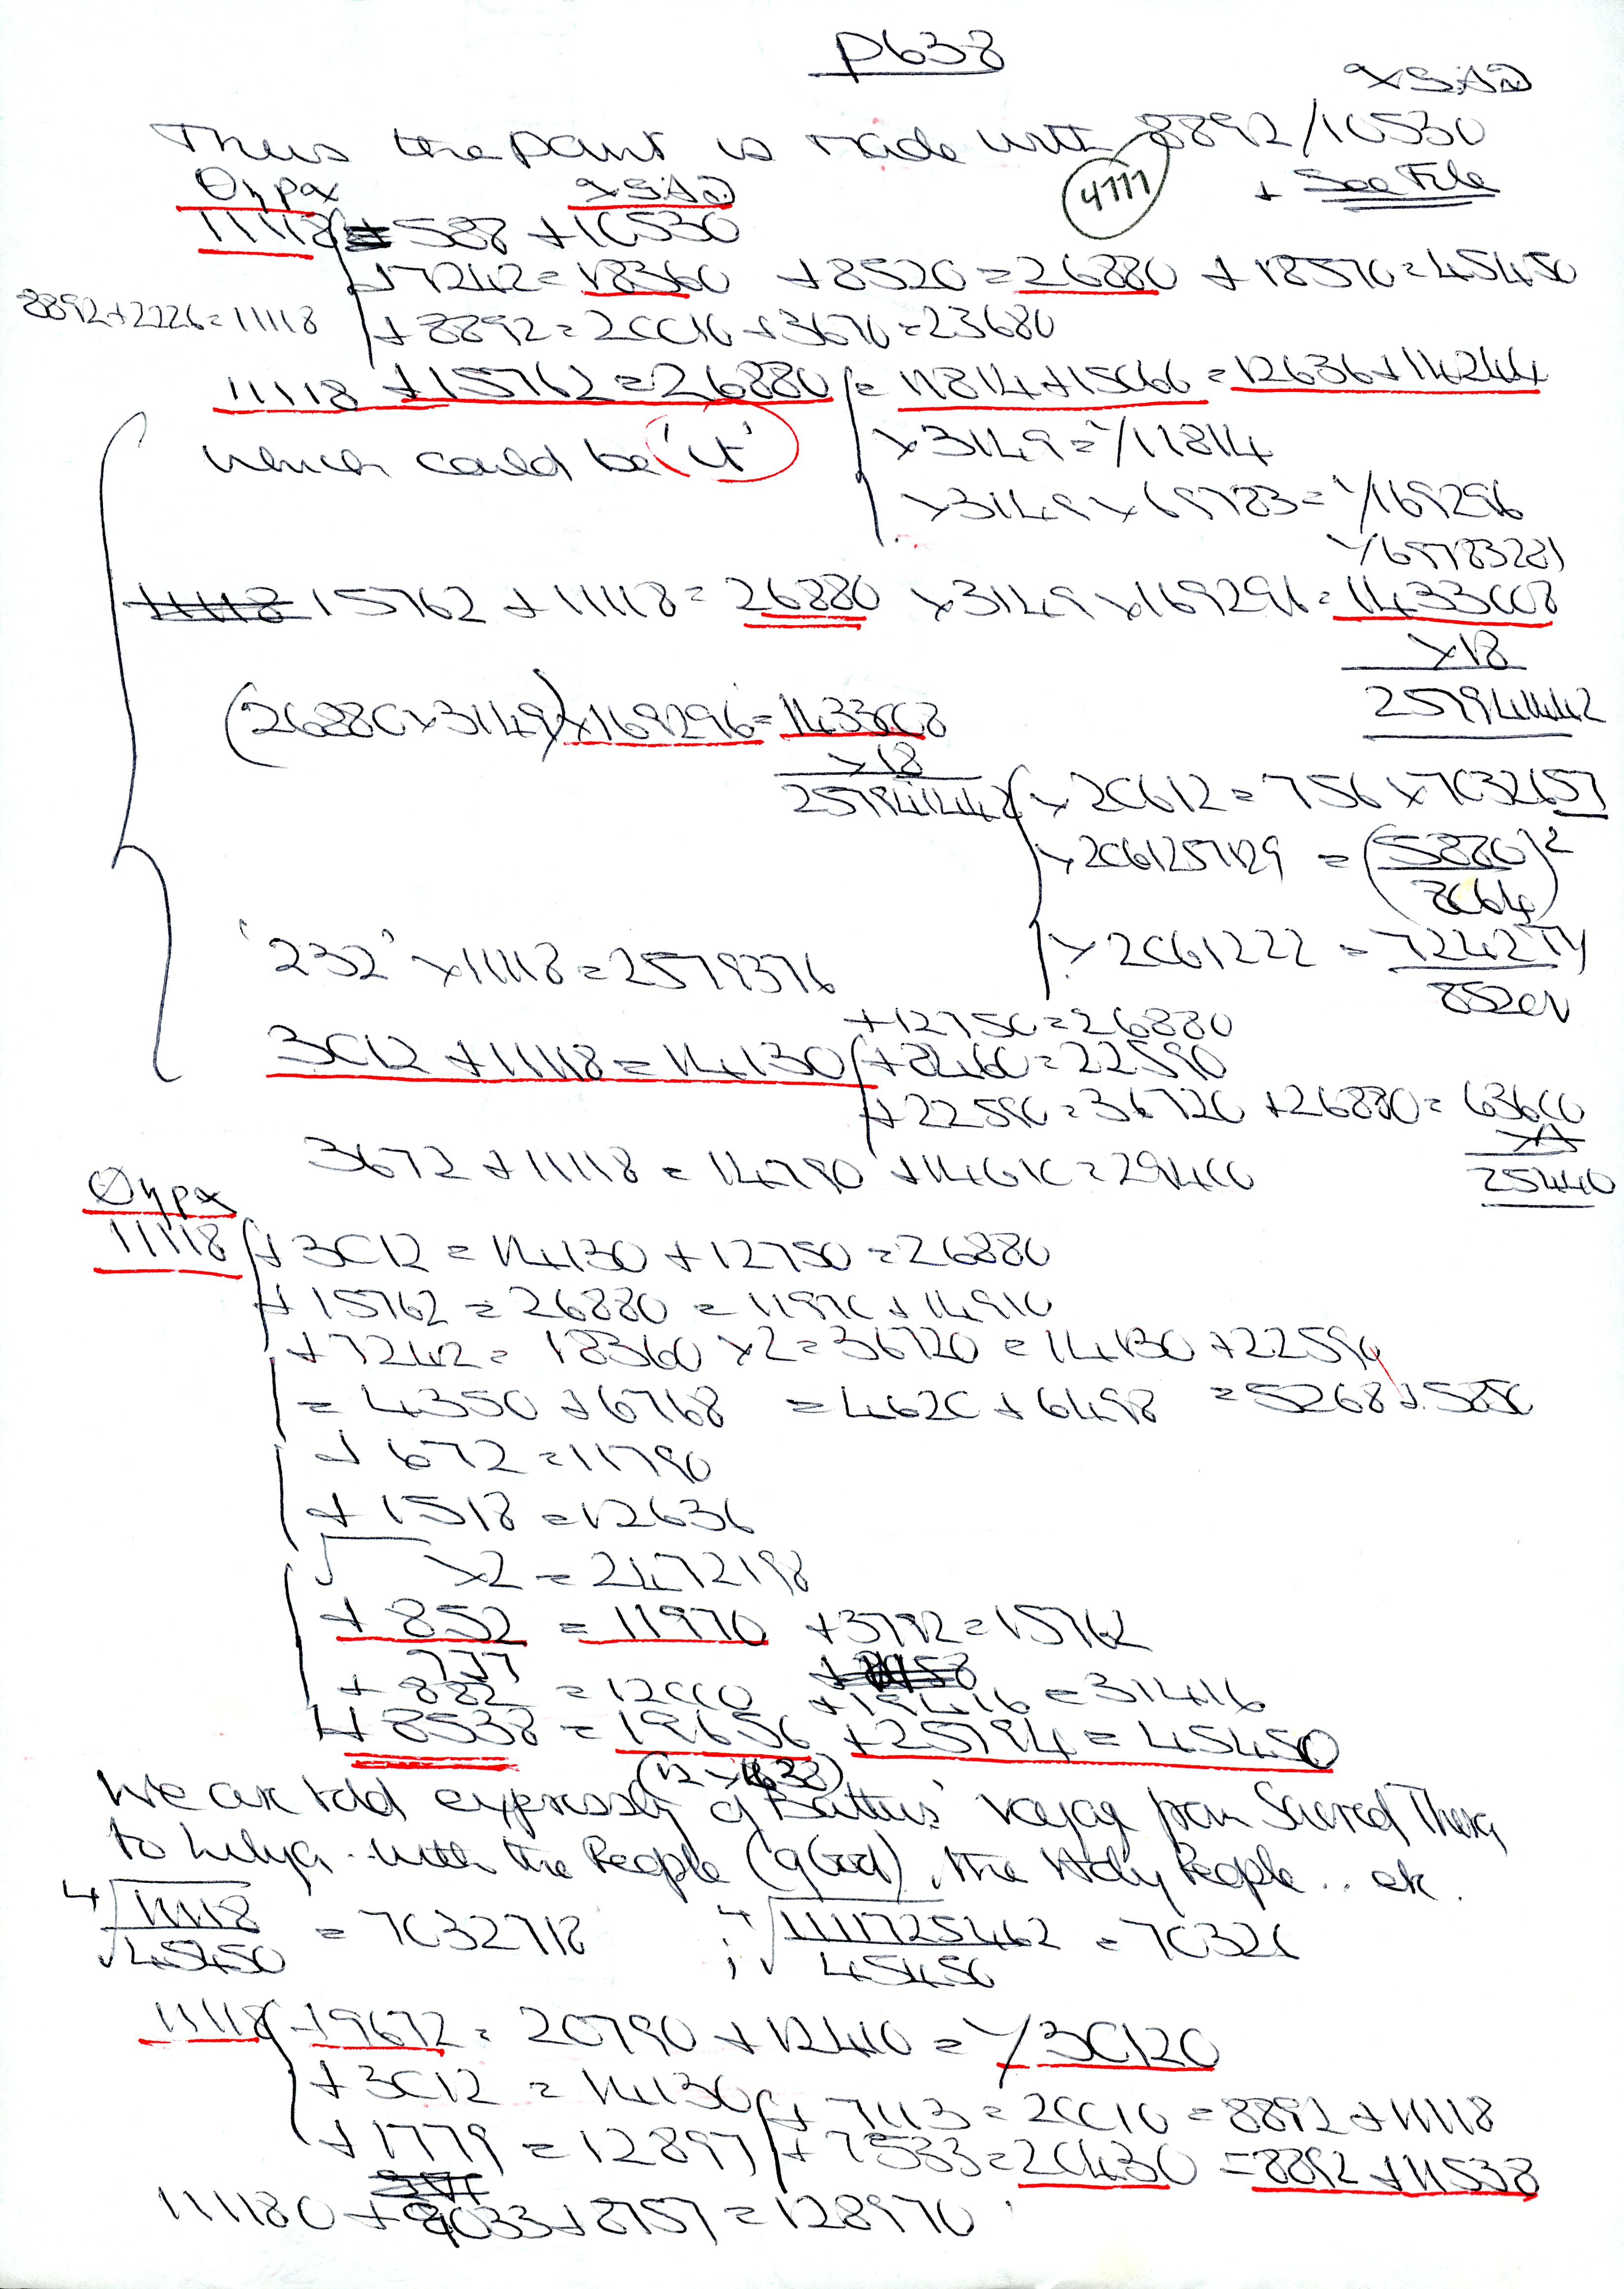 P638
XSAD
Thus the point is made with 8892/10530
4777
+ See File
Θηρα XSAD
11118 + 588 + 10530
+ 7242 = 18360 + 8520 = 26880 + 18570 = 45450
8892 + 2226 = 11118
+ 8892 = 20010 + 3670 = 23680
11118 + 15762 = 26880 = 11814 + 15066 = 12636 + 14244
which could be 'it'
x 3149 = 1/11814
x 3149 x 69783 = 1/169296
1/69783281
11118 15762 + 11118 = 26880 x 3149 x 169296 = 1433008
x 18
25794142
(26880 x 3149) x 169296 = 1433008
x 18
25794142
x 20612 = 756 x 7032657
x 206125729 = (5880/8064)²
x 2061222 = 7242 TY
852 EN
'232' x 11118 = 2579376
+ 12750 = 26880
3012 + 11118 = 14130 + 8460 = 22590
+ 22590 = 36720 + 26880 = 63600
x 4
25440
3672 + 11118 = 14790 + 14610 = 29400
Θηρα
11118 + 3012 = 14130 + 12750 = 26880
+ 15762 = 26880 = 11970 + 14910
+ 7242 = 18360 x 2 = 36720 = 14130 + 22590
= 4350 + 6768 = 4620 + 6498 = 5268 + 5850
+ 672 = 11790
+ 1518 = 12636
√ x 2 = 2472198
+ 852 = 11970 + 3792 = 15762
777
+ 882 = 12000 + 19416 = 31416
+ 8538 = 19656 + 25794 = 45450
(12 x 1638)
We are told expressly of Battus' voyage from Sacred Thera
to Libya .. with the People (of God), the Holy People .. etc.
⁴√11118/45450 = 7032718 ; ⁴√1111725462/45450 = 70326
11118 + 9672 = 20790 + 12410 = 1/30120
+ 3012 = 14130
+ 7113 = 20010 = 8892 + 11118
+ 1779 = 12897 + 7533 = 20430 = 8892 + 11538
111180 + 9033 + 8757 = 128970